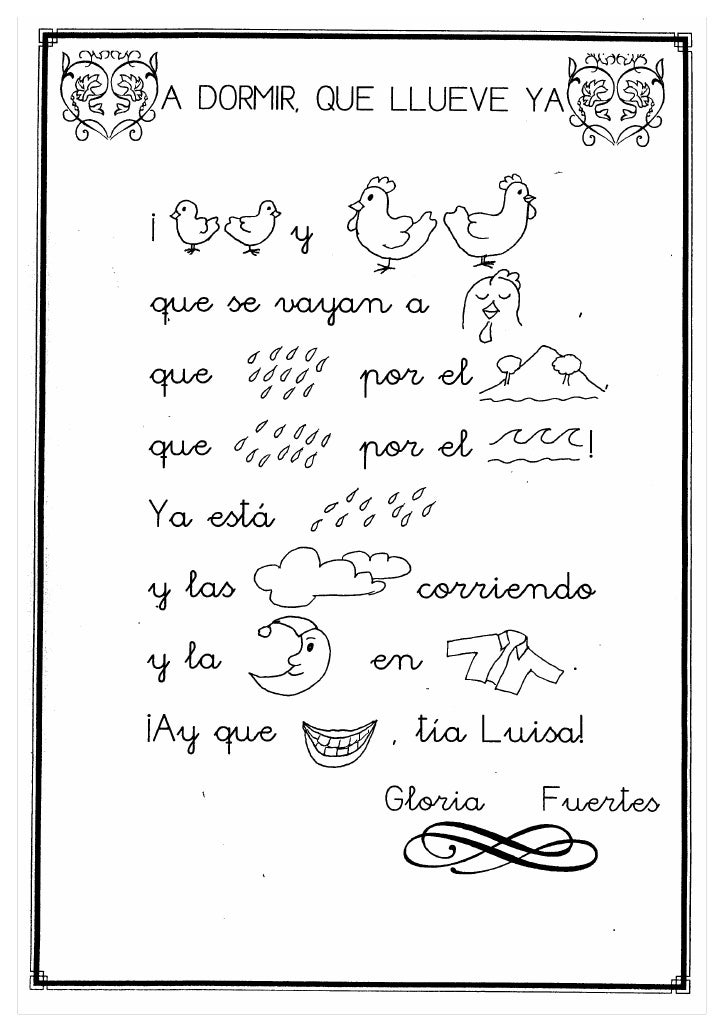 A DORMIR, QUE LLUEVE YA
¡ y
que se vayan a ,
que por el ,
que por el !
Ya está
y las corriendo
y la en .
¡Ay que , tía Luisa!
Gloria Fuertes